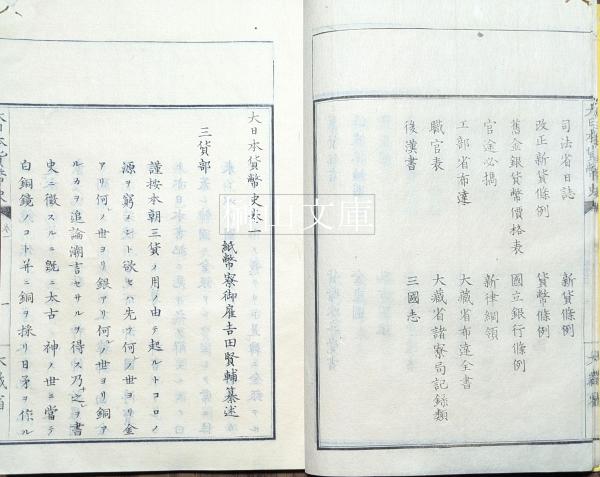 司法省日誌
新貨條例
改正新貨條例
貨幣條例
舊金銀貨幣價格表
國立銀行條例
官途必攜
新律綱領
工部省布達
大藏省布達全書
職官表
大藏省諸寮局記録類
後漢書
三國志
大日本貨幣史
大日本貨幣史卷一
紙幣寮御雇吉田賢輔纂述
三貨部
謹按本朝三貨ノ用ノ由テ起ルトコロノ
源ヲ窮メント欲セハ先ツ何ノ世ヨリ金
アリ何ノ世ヨリ銀アリ何ノ世ヨリ銅ア
ルカヲ追論溯言セサルヲ得ス乃之ヲ書
史ニ徵スルニ既ニ太古 神ノ世ニ當テ
白銅鏡ノコト并ニ銅ヲ採リ日矛ヲ作ル
大日本貨幣史
卷一
一
大藏省